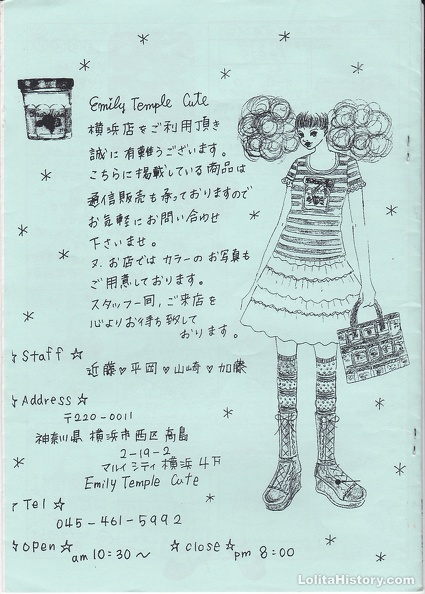 Emily Temple Cute
横浜店をご利用頂き
誠に有難うございます。
こちらに掲載している商品は
通信販売も承っておりますので
お気軽にお問い合わせ
下さいませ。
又、お店では カラーの お写真も
ご用意しております。
スタッフ一同、ご来店を
心よりお待ち致して
おります。
Staff ☆
近藤♡平岡♡山崎♡加藤
Address ☆
〒220-0011
神奈川県 横浜市西区高島
2-19-2
マルイシティ横浜 4F
Emily Temple Cute
Tel ☆
045-461-5992
☆open ☆ am 10:30〜 ☆close☆ pm 8:00
LolitaHistory.com